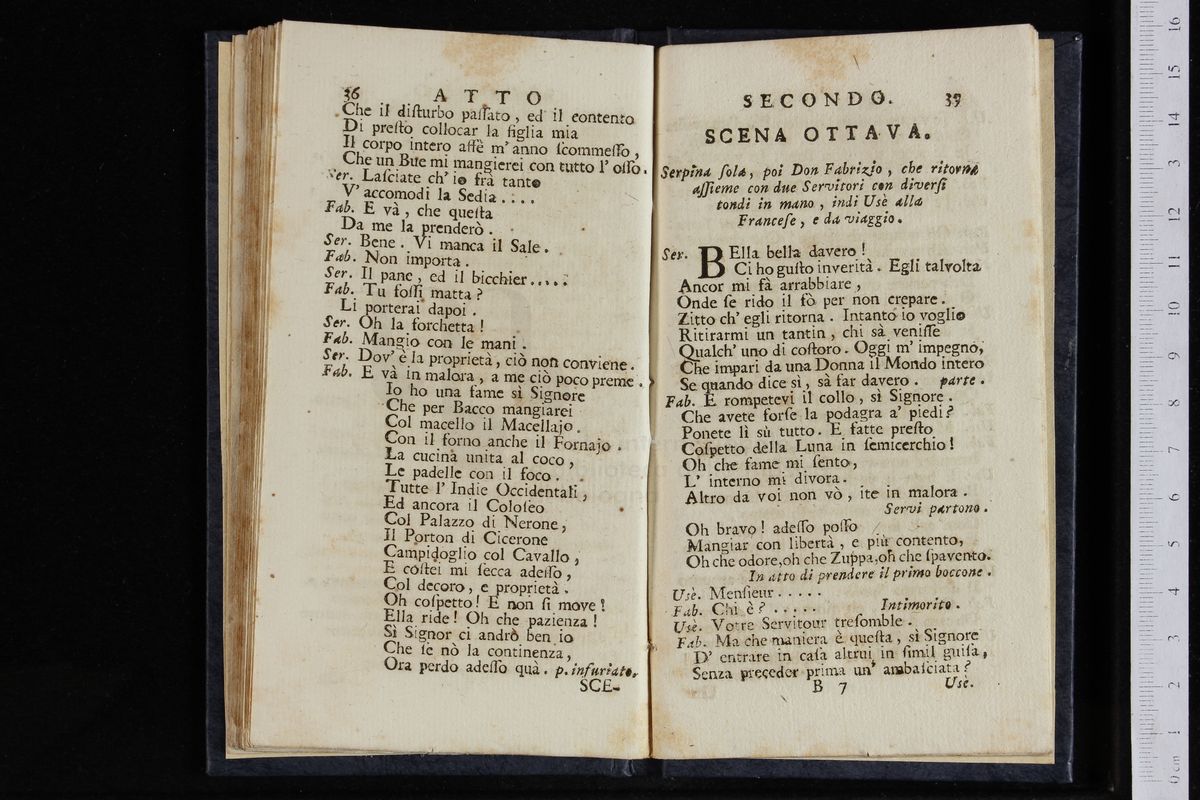 36 ATTO
Che il diſturbo paſſato , ed il contento
Di preſto collocar la figlia mia
Il corpo intero affè m' anno ſcommeſſo ,
Che un Bue mi mangierei con tutto l' oſſo.
Ser. Laſciate ch' io frà tanto
V' accomodi la Sedia . . . .
Fab. E và , che queſta
Da me la prenderò .
Ser. Bene . Vi manca il Sale .
Fab. Non importa .
Ser. Il pane , ed il bicchier . . . . .
Fab. Tu foſſi matta ?
Li porterai dapoi .
Ser. Oh la forchetta !
Fab. Mangio con le mani .
Ser. Dov' è la proprietà , ciò non conviene .
Fab. E và in malora , a me ciò poco preme .
Io ho una fame sì Signore
Che per Bacco mangiarei
Col macello il Macellajo .
Con il forno anche il Fornajo .
La cucina unita al coco ,
Le padelle con il foco .
Tutte l' Indie Occidentali ,
Ed ancora il Coloſeo
Col Palazzo di Nerone ,
Il Porton di Cicerone
Campidoglio col Cavallo ,
E coſtei mi ſecca adeſſo ,
Col decoro , e proprietà .
Oh coſpetto ! E non ſi move !
Ella ride ! Oh che pazienza !
Sì Signor ci andrò ben io
Che ſe nò la continenza ,
Ora perdo adeſſo quà . p. infuriato.
SCE-
SECONDO. 37
SCENA OTTAVA.
Serpina ſola , poi Don Fabrizio , che ritorna
aſſieme con due Servitori con diverſi
tondi in mano , indi Usè alla
Franceſe , e da viaggio .
Ser. BElla bella davero !
Ci ho guſto inverità . Egli talvolta
Ancor mi fà arrabbiare ,
Onde ſe rido il fò per non crepare .
Zitto ch' egli ritorna . Intanto io voglio
Ritirarmi un tantin , chi sà veniſſe
Qualch' uno di coſtoro . Oggi m' impegno,
Che impari da una Donna il Mondo intero
Se quando dice sì , sà far davero . parte .
Fab. E rompetevi il collo , sì Signore .
Che avete forſe la podagra a' piedi ?
Ponete lì sù tutto . E fatte preſto
Coſpetto della Luna in ſemicerchio !
Oh che fame mi ſento ,
L' interno mi divora .
Altro da voi non vò , ite in malora .
Servi partono .
Oh bravo ! adeſſo poſſo
Mangiar con libertà , e più contento,
Oh che odore,oh che Zuppa,oh che ſpavento.
In atto di prendere il primo boccone .
Usè. Menſieur . . . . .
Fab. Chi è ? . . . . . Intimorito .
Usè. Votre Servitour treſomble .
Fab. Ma che maniera è queſta , sì Signore
D' entrare in caſa altrui in ſimil guiſa ,
Senza preceder prima un' ambaſciata ?
B 7 Usè.